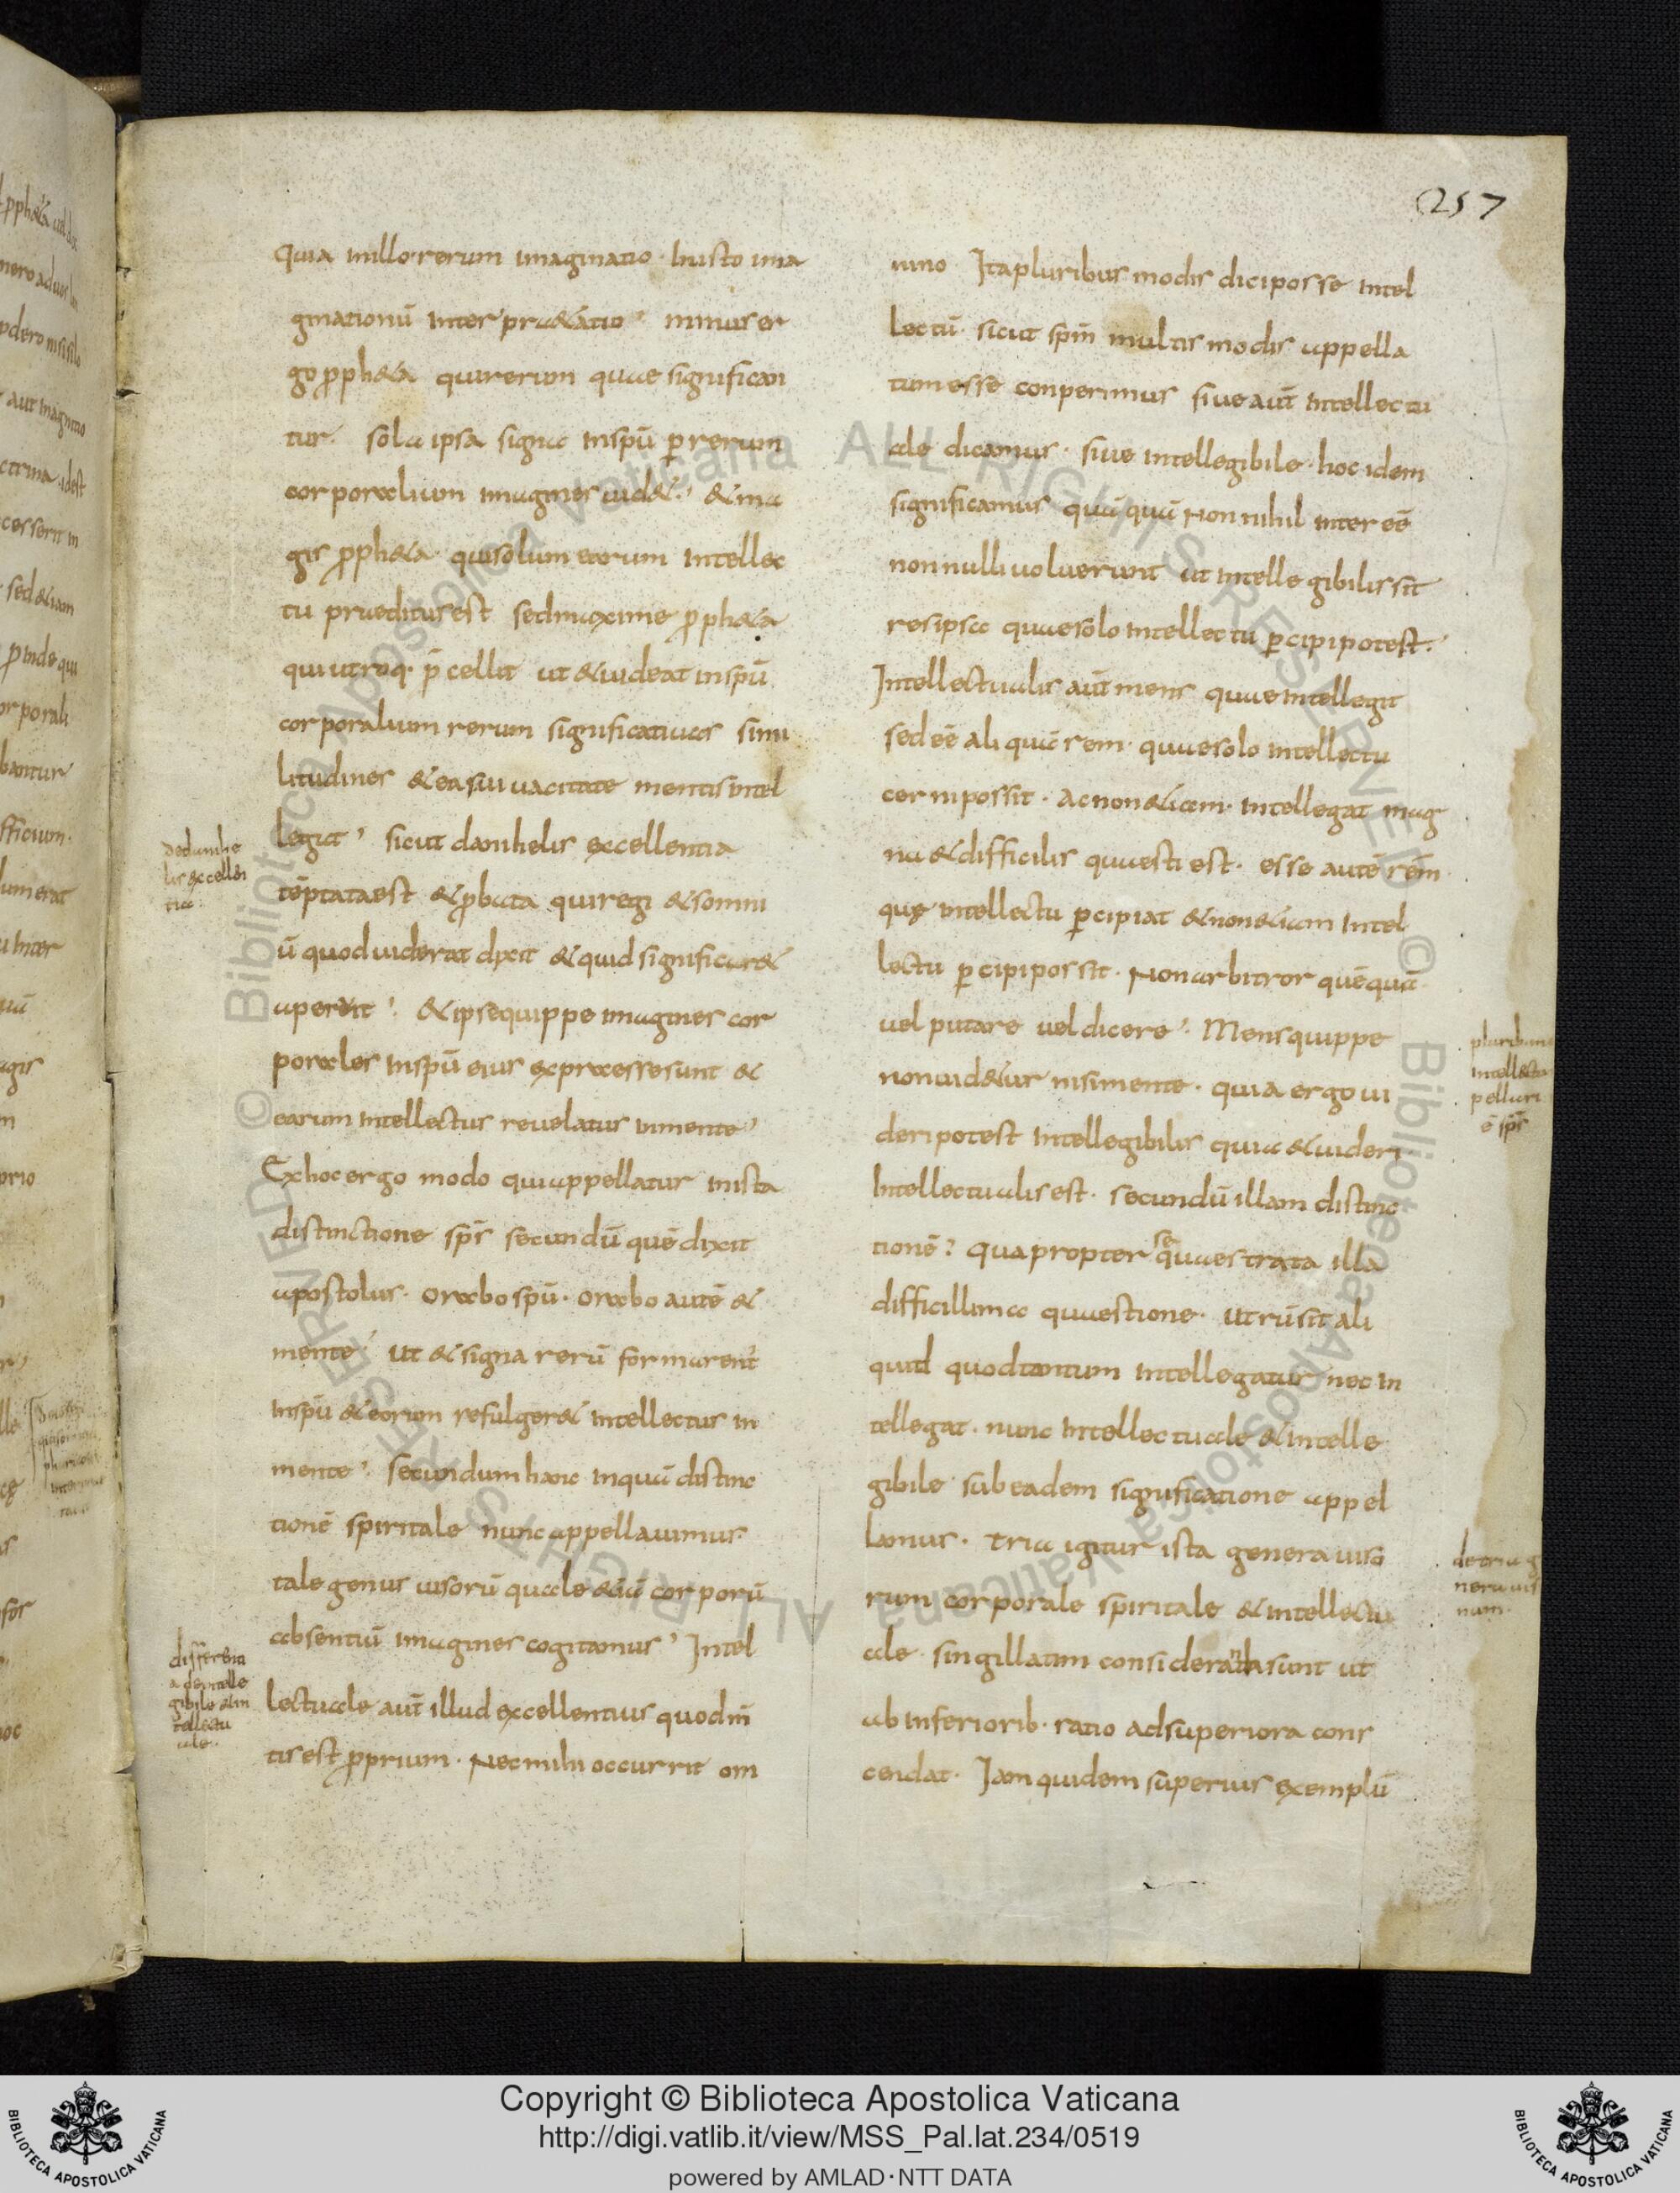 257
quia inillo rerum imaginatio · inisto ima
ginationū interpr&atio minus er
go ꝓph&a quirerum quae significan
tur · sola ipsa signa inspū ꝑ rerum
corporalium imagines uid& · & ma
gis ꝓph&a quisolum earum intellec
tu praeditus est sed maxime ꝓph&a
qui utroq· p̄cellit ut & uideat inspū
corporalium rerum significatiuas simi
litudines & eas uiuacitate mentis intel
legat sicut danihelis excellentia
tēptata est & ꝓbata qui regi & somni
ū quod uiderat dixit & quid significar&
aperuit · & ipse quippe imagines cor
porales inspū eius expressae sunt &
earum intellectus reuelatus in mente
Ex hoc ergo modo qui appellatur inista
distinctione sp̄s secundū quē dixit
apostolus · orabo spū · orabo autē &
mente ut & signa rerū formarent̄
inspū & eorum refulger& intellectus in
mente · secundum hanc inquā distinc
tionē spiritale nunc appellauimus
tale genus uisorū quale &iā corporū
absentiū imagines cogitamus Intel
lectuale aut̄ illud excellentius quod m̄
tis est ꝓprium · Nec mihi occurrit om
nino Ita pluribus modis dici posse intel
lectū · sicut spm̄ multis modis appella
tum esse conperimus siue aut̄ intellectu
ale dicamus · siue intellegibile · hoc idem
significamus quā quā Non nihil inter eē
nonnulli uoluerunt ut intellegibilis sit
res ipsa quae solo intellectu ꝑcipi potest ·
Intellectualis aut̄ mens quae intellegit
sed eē aliquā rem · quae solo intellectu
cerni possit · ac non &iam · intellegat mag
na & difficilis quaesti est · esse autē rēm
quę intellectu ꝑcipiat & non &iam intel
lectu ꝑcipi possit · Non arbitror quēquā
uel putare uel dicere · Mens quippe
non uid&ur nisi mente · quia ergo ui
deri potest intellegibilis quia & uideri
Intellectualis est · secundū illam distinc
tionē · Quapropter sequaestrata illa
difficillima quaestione · Utrū sit ali
quid quod tantum intellegatur nec in
tellegat · nunc intellectuale & intelle
gibile sub eadem significatione appel
lamus · Tria igitur ista genera uiso
rum corporale spiritale & intellectu
ale · singillatim consideranda sunt ut
ab inferiorib · ratio ad superiora cons
cendat · Iam quidem superius exemplū
Dedanihe
lis excellen
tia
differentia
a de intelle
gibile & in
tellectu
ale